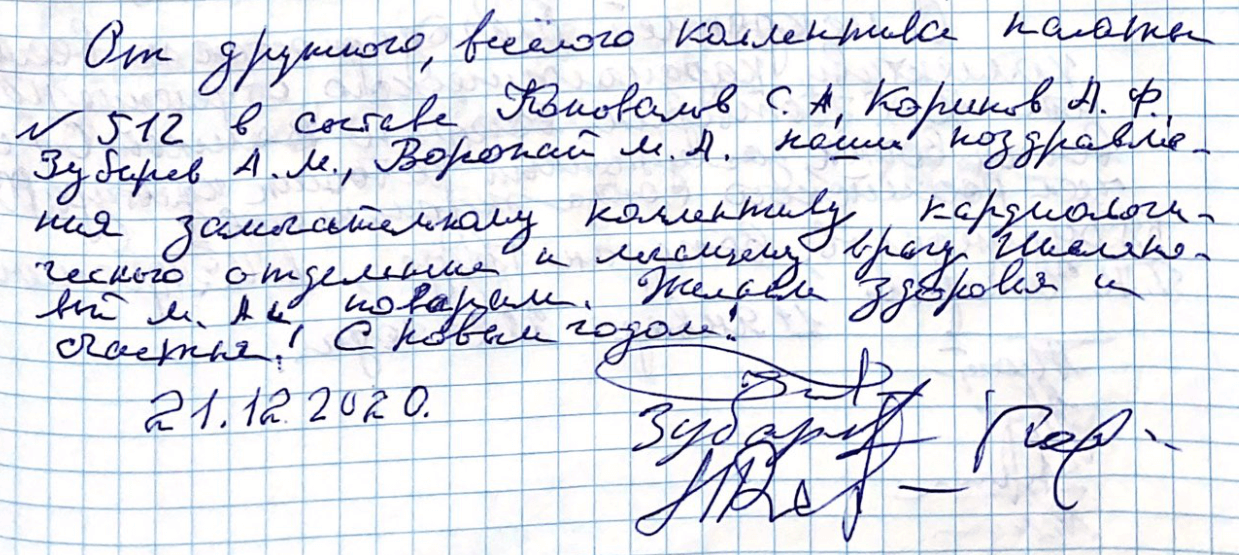 От дружного, весёлого коллектива палаты
№ 512 в составе Коновалов С. А, Кориков А. Ф.,
Зубарев А. М., Воронай М. А. наши поздравле-
ния замечательному коллективу кардиологи-
ческого отделения и лечащему врачу
вой М. А и поварам. Желаем здоровья и
счастья! С новым годом!
21.12.2020.
Зубарев